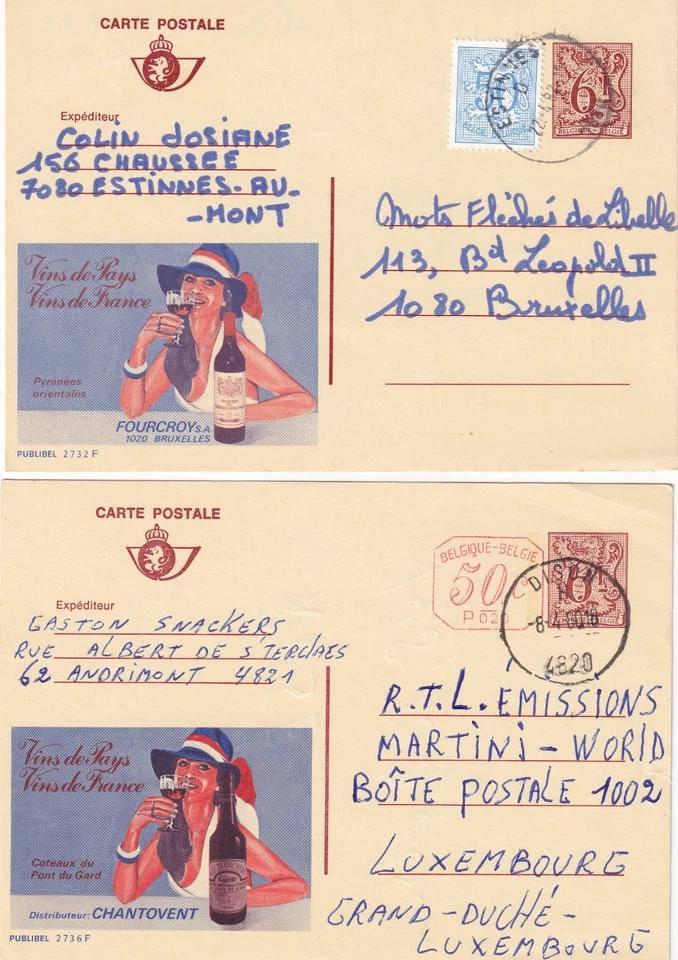 CARTE POSTALE
Expéditeur
COLIN JOSIANE
156 CHAUSSEE
7080 ESTINNES-AU-
-MONT
Vins de Pays
Vins de France
Pyrénées
orientales
FOURCROY S.A.
1020 BRUXELLES
PUBLIBEL 2732 F
50
6F
BELGIE-BELGIQUE
Mots Flêchés de Libelle
113, Bd Leopold II
1080 Bruxelles
CARTE POSTALE
Expéditeur
GASTON SNACKERS
RUE ALBERT DE S'TERCHAES
62 ANDRIMONT 4821
Vins de Pays
Vins de France
Coteaux du
Pont du Gard
Distributeur: CHANTOVENT
PUBLIBEL 2736 F
BELGIQUE-BELGIE
50 C
P020
DISON
4820
R.T.L. EMISSIONS
MARTINI - WORLD
BOÎTE POSTALE 1002
LUXEMBOURG
GRAND-DUCHÉ-
LUXEMBOURG